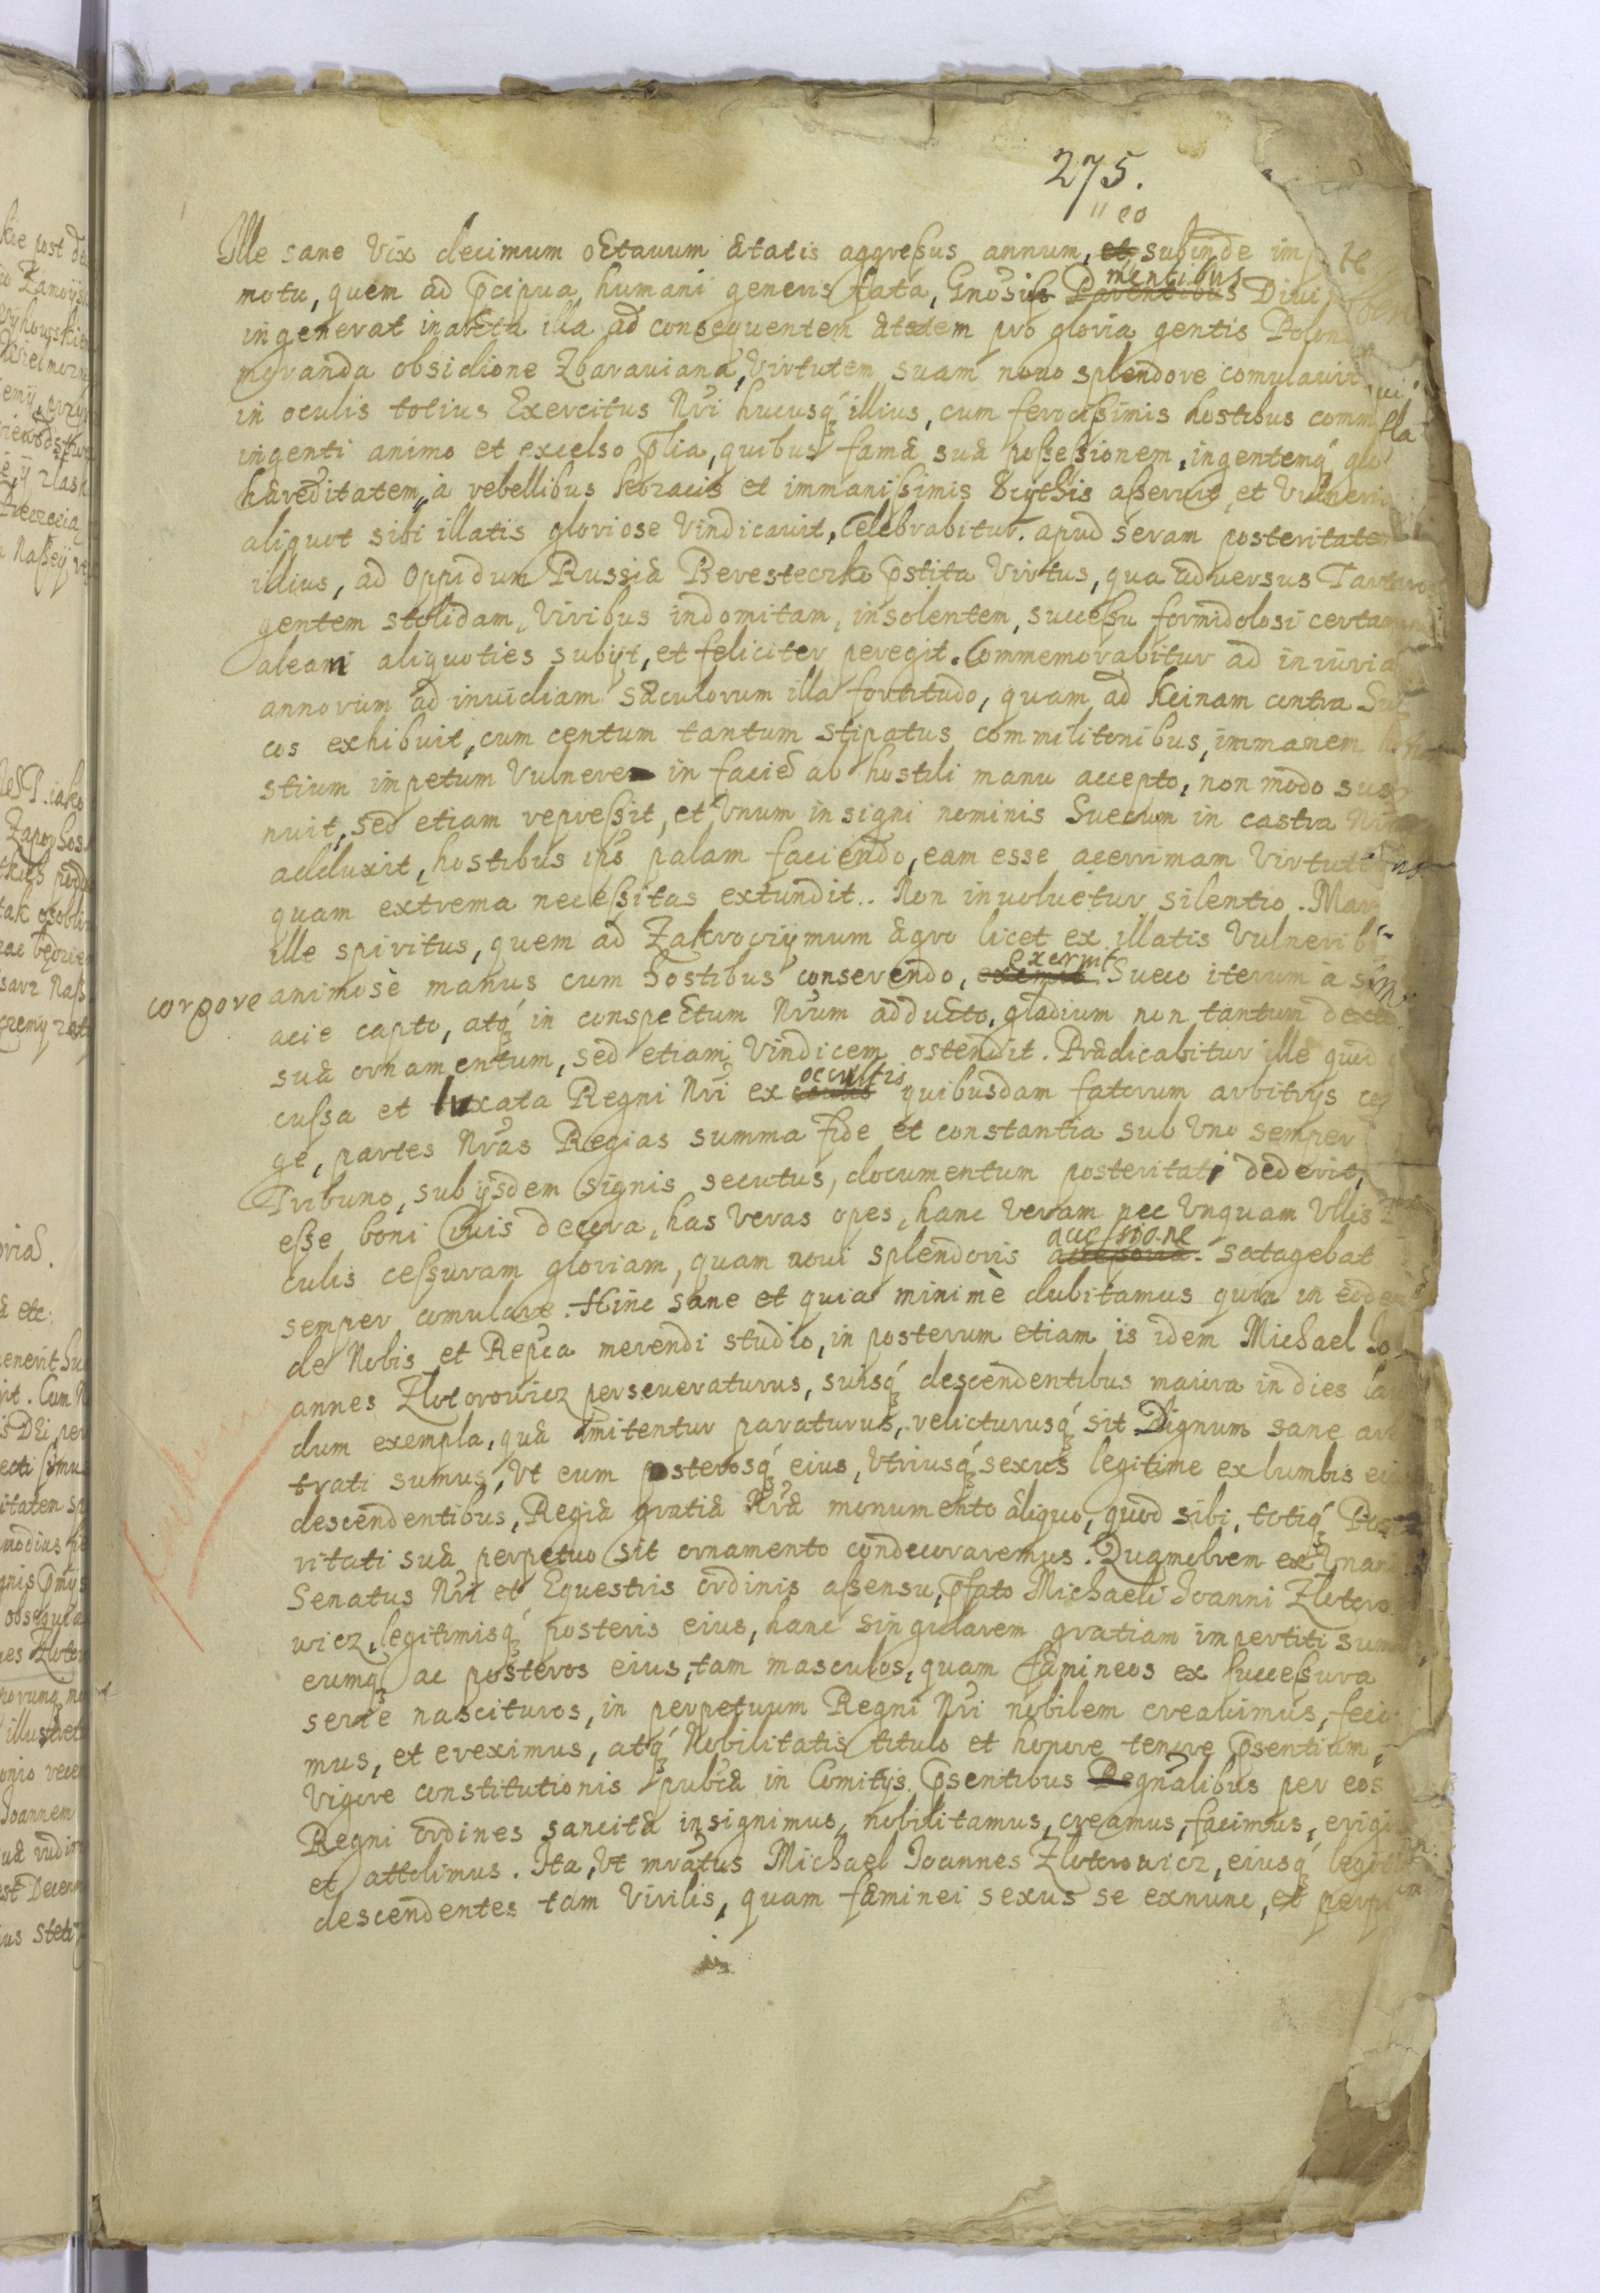 275.
"eo
Ille sane Vix decimum octauum ætatis aggressus annum, et subinde
mentibus
motu, quem ad pcipua humani generis fata, Gnosis Parentibus Diui
ingenerat in arcta illa ad consequentem ætatem pro gloria gentis Polon
moranda obsidione Zbarauiana, Virtutem suam nouo splendore comulauit
in oculis totius Exercitus Nri hucusq illius, cum ferocissimis hostibus comm
ingenti animo et excelso plia, quibus famæ suæ possessionem, ingentemq
hæreditatem, a rebellibus kozacis et immanissimis Scythis asseruit et Vulneri
aliquot sibi illatis gloriose Vindicauit, Celebrabitur apud seram posteritatem
illius, ad Oppidum Russiæ Beresteczko pstita Virtus, qua aduersus Tartaro
gentem stolidam, Viribus indomitam, insolentem, successu formidolosi certam
aleam aliquoties subijt, et feliciter peregit. Commemorabitur ad iniuria
annorum ad inuidiam sæculorum illa fortitudo, quam ad Kcinam contra Sue
cos exhibuit, cum centum tantum stipatus commilitonibus, immanem ho
stium impetum Vulnere in facie ab hostili manu accepto, non modo sus
nuit, sed etiam repressit, et Vnum insigni nominis Suecum in castra Nra
adduxit, hostibus ips palam faciendo, eam esse acerrimam Virtutem
quam extrema necessitas extundit. Non inuoluetur silentio. Mar
ille spiritus, quem ad Zakroczijmum ægro licet ex illatis Vulneribs
corpore
exeruit
animosè manus cum hostibus conserendo, Sueco iterum à
acie capto, atq in conspectum Nrum adducto, gladium non tantum
suæ ornamentum, sed etiam Vindicem ostendit. Prædicabitur ille quod
occultis
cussa et luxata Regni Nri ex quibusdam fatorum arbitrijs
ge, partes Nras Regias summa fide et constantia sub Vno semper
Tribuno, sub ijsdem signis secutus, documentum posteritati dederit,
esse boni Ciuis decora, has veras opes, hanc veram nec Vnquam Vllis
accessione
culis cessuram gloriam, quam noui splendoris satagebat
semper comulare. Hinc sane et quia minimè dubitamus quin in eodem
de Nobis et Repca merendi studio, in posterum etiam is idem Michael Io
annes Zlotorowicz perseueraturus, suisq descendentibus maiora in dies
dum exempla, quæ imitentur paraturus, relicturusq sit. Dignum sane
trati sumus, Vt eum posterosq eius, Vtriusq sexus legitime ex lumbis
descendentibus, Regiæ gratiæ Nræ monumento aliquo, quod sibi, totiq Poste
ritati suæ perpetuo sit ornamento condecoraremus. Quamobrem ex Vnani
Senatus Nri et Equestris ordinis assensu, pfato Michaeli Ioanni Zlotoro
wicz, legitimisq posteris eius, hanc singularem gratiam impertiti sumus
eumq ac posteros eius, tam masculos, quam fæmineos ex successura
serie nascituros, in perpetuum Regni Nri nobilem creauimus, feci
mus, et ereximus, atq Nobilitatis titulo et honore tenore psentium,
Vigore constitutionis pubcæ in Comitijs psentibus Regnalibus per eos
Regni ordines sancitæ insignimus, nobilitamus, creamus, facimus, erigi
et attolimus. Ita, Vt mratus Michael Ioannes Zlotorowicz, eiusq legit
descendentes tam Virilis, quam fæminei sexus se exnunc, et perp